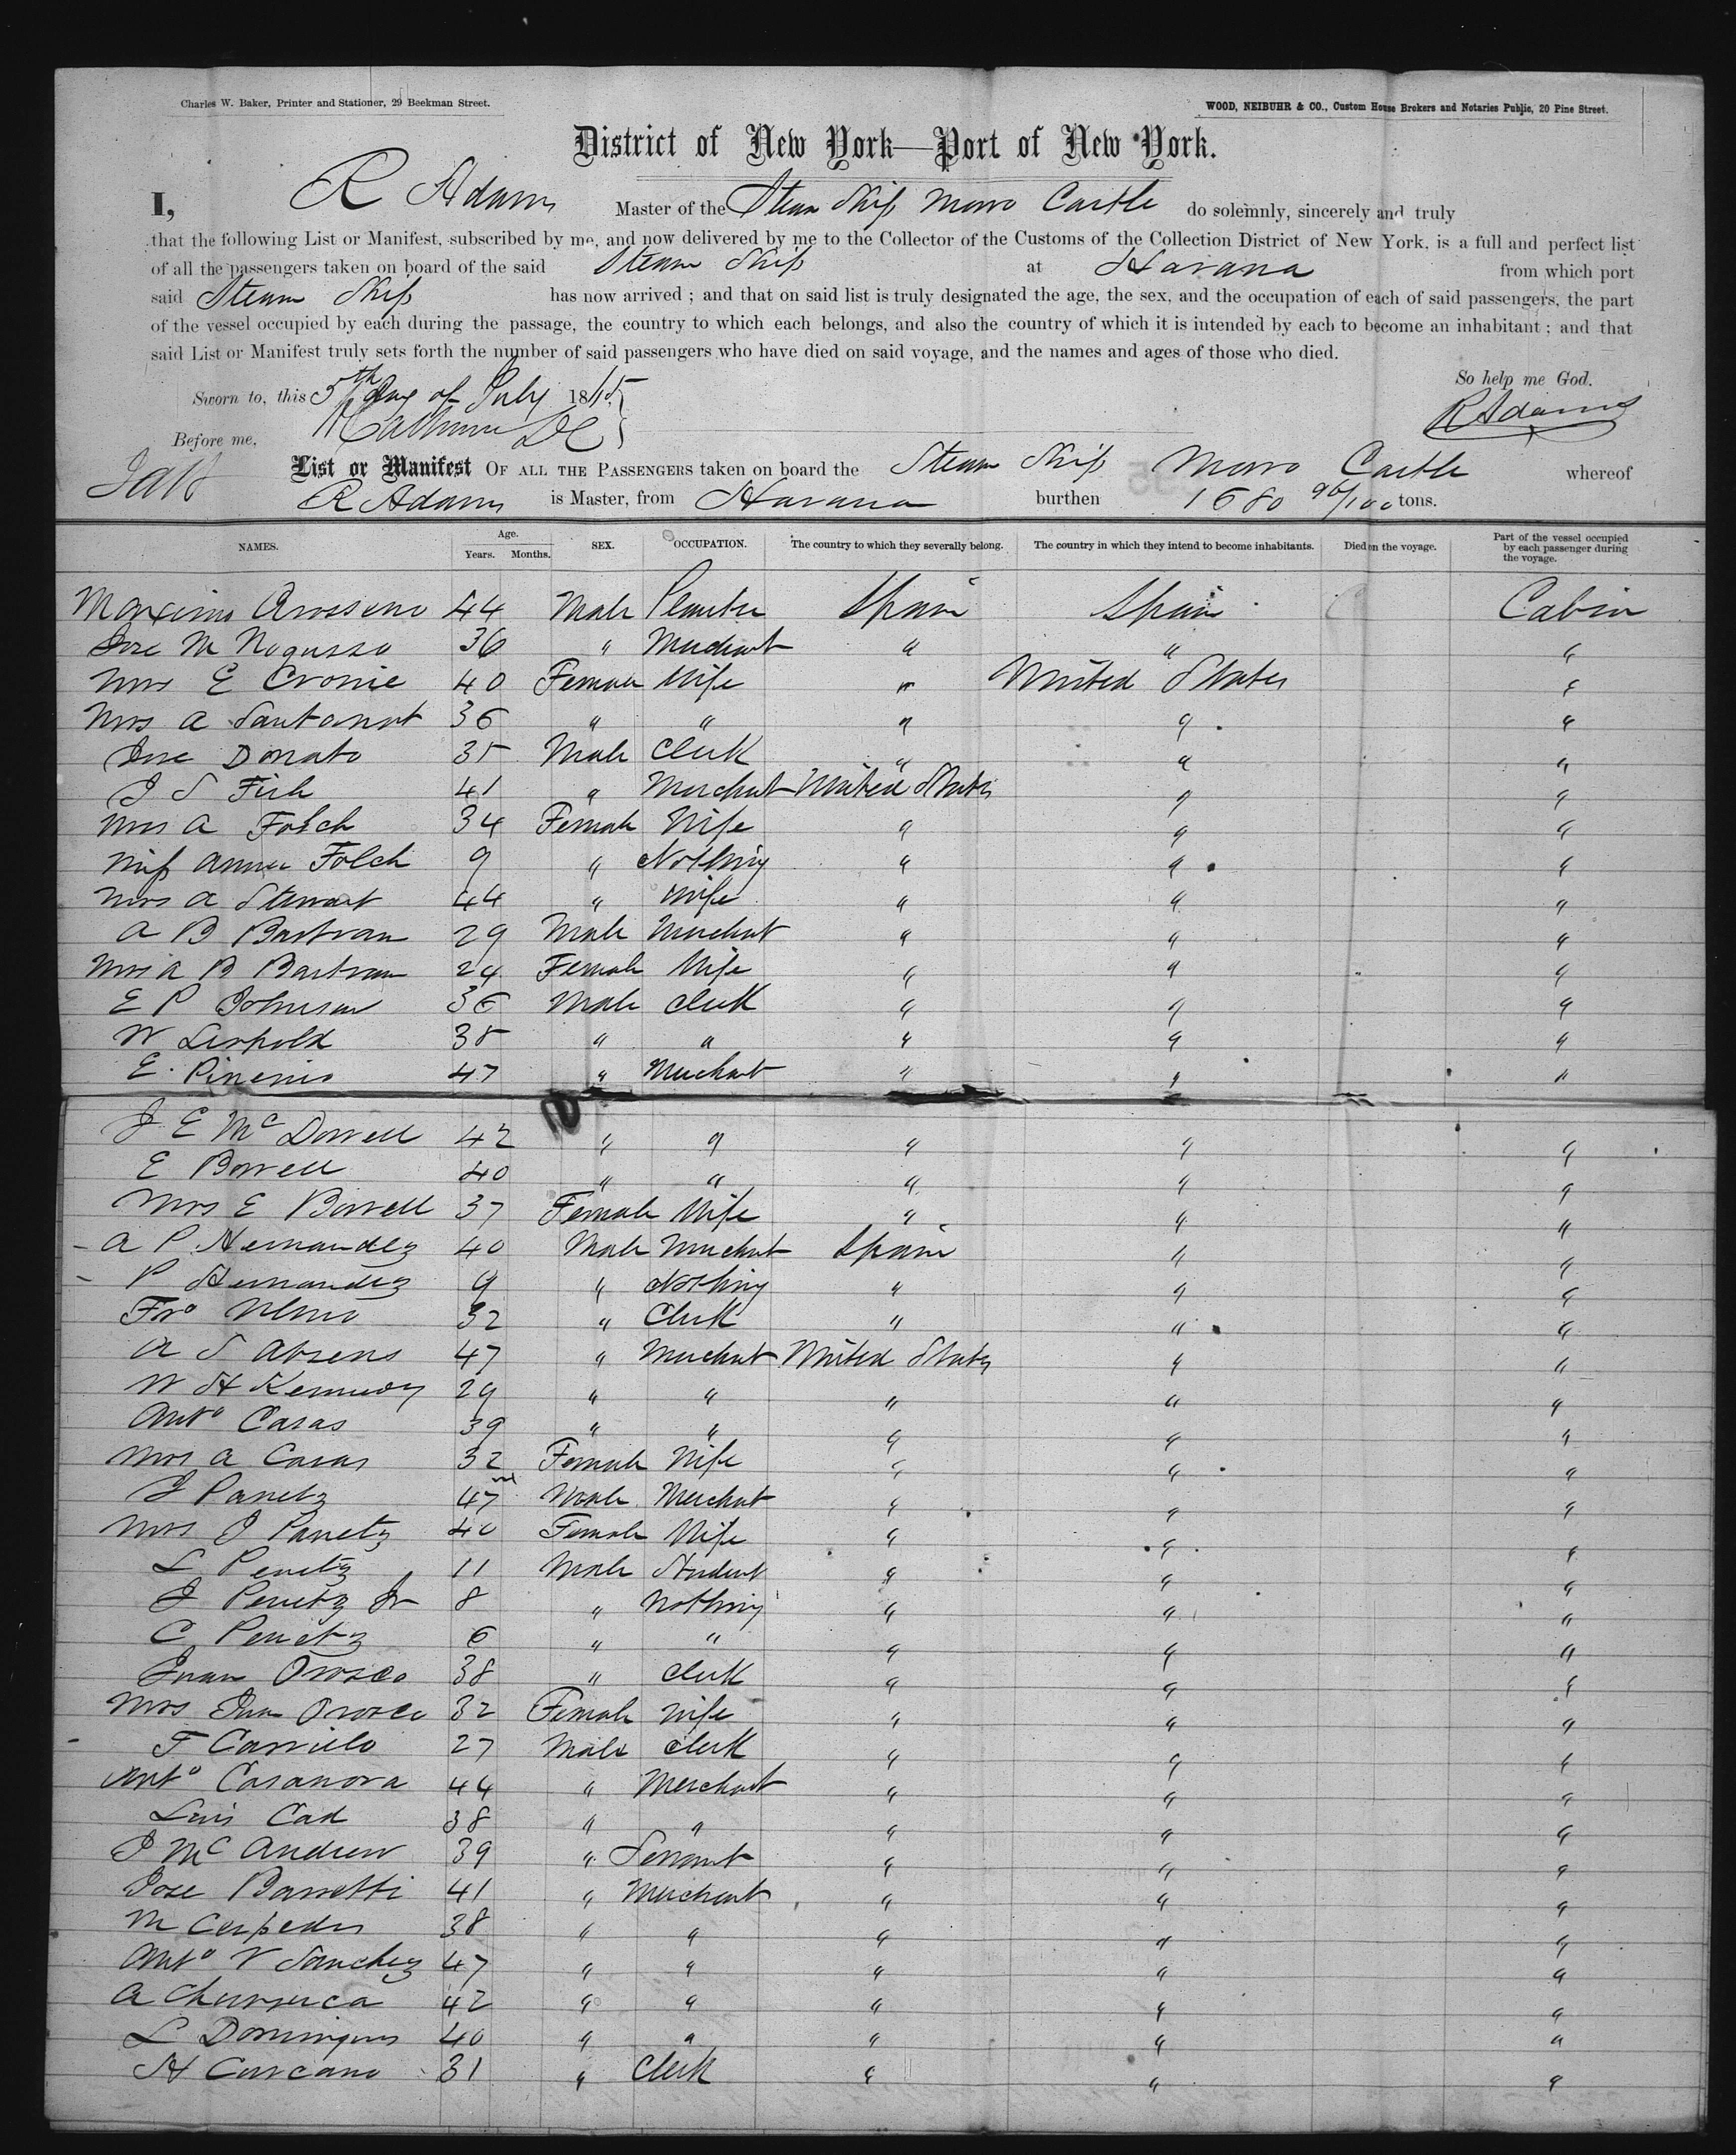 Charles W. Baker, Printer and Stationer, 29 Beekman Street.
WOOD, NEIBUHR & CO., Custom House Brokers and Notaries Public, 20 Pine Street.
District of New York—Port of New York.
I, R Adams Master of the Steam Ship Morro Castle do solemnly, sincerely and truly
that the following List or Manifest, subscribed by me, and now delivered by me to the Collector of the Customs of the Collection District of New York, is a full and perfect list
of all the passengers taken on board of the said Steam Ship at Havana from which port
said Steam Ship has now arrived ; and that on said list is truly designated the age, the sex, and the occupation of each of said passengers, the part
of the vessel occupied by each during the passage, the country to which each belongs, and also the country of which it is intended by each to become an inhabitant ; and that
said List or Manifest truly sets forth the number of said passengers who have died on said voyage, and the names and ages of those who died.
So help me God.
Sworn to, this 5th day of July 18
R Adams
Before me,
List or Manifest OF ALL THE PASSENGERS taken on board the Steam Ship Morro Castle whereof
R Adams is Master, from Havana burthen 1680 96/100 tons.
NAMES. Age. Years. Months. SEX. OCCUPATION. The country to which they severally belong. The country in which they intend to become inhabitants. Died on the voyage. Part of the vessel occupied by each passenger during the voyage.
Maximo 44 Male Planter Spain Spain Cabin
Jose M 36 " Merchant " " "
Mrs E Cronie 40 Female Wife " United States "
Mrs A 36 " " " " "
Jose Donato 35 Male Clerk " " "
J S Fish 41 " Merchant United States " "
Mrs A Folch 34 Female Wife " " "
Miss Anna Folch 9 " Nothing " " "
Mrs A Stewart 44 " Wife " " "
A B Bartram 29 Male Merchant " " "
Mrs A B Bartram 24 Female Wife " " "
E P Johnson 36 Male Clerk " " "
W Leopold 38 " " " " "
E. 47 " Merchant " " "
J E Mc Dowell 42 " " " " "
E Borrell 40 " " " " "
Mrs E Borrell 37 Female Wife " " "
A P Hernandez 40 Male Merchant Spain " "
P Hernandez 9 " Nothing " " "
Fro 32 " Clerk " " "
A S 47 " Merchant United States " "
W H Kennedy 29 " " " " "
Anto Casas 39 " " " " "
Mrs A Casas 32 Female Wife " " "
J Panetz 47 Male Merchant " " "
Mrs J Panetz 40 Female Wife " " "
L Penetz 11 Male Student " " "
J Penetz Jr 8 " Nothing " " "
C Penetz 6 " " " " "
Juan Orosco 38 " Clerk " " "
Mrs Juan Orosco 32 Female Wife " " "
F Carrielo 27 Male Clerk " " "
Anto Casanova 44 " Merchant " " "
Luis Cad 38 " " " " "
J Mc Andrew 39 " Servant " " "
Jose Barretti 41 " Merchant " " "
M Cespedes 38 " " " " "
Anto V Sanchez 47 " " " " "
A Churruca 42 " " " " "
L Domingues 40 " " " " "
H Carcano 31 " Clerk " " "